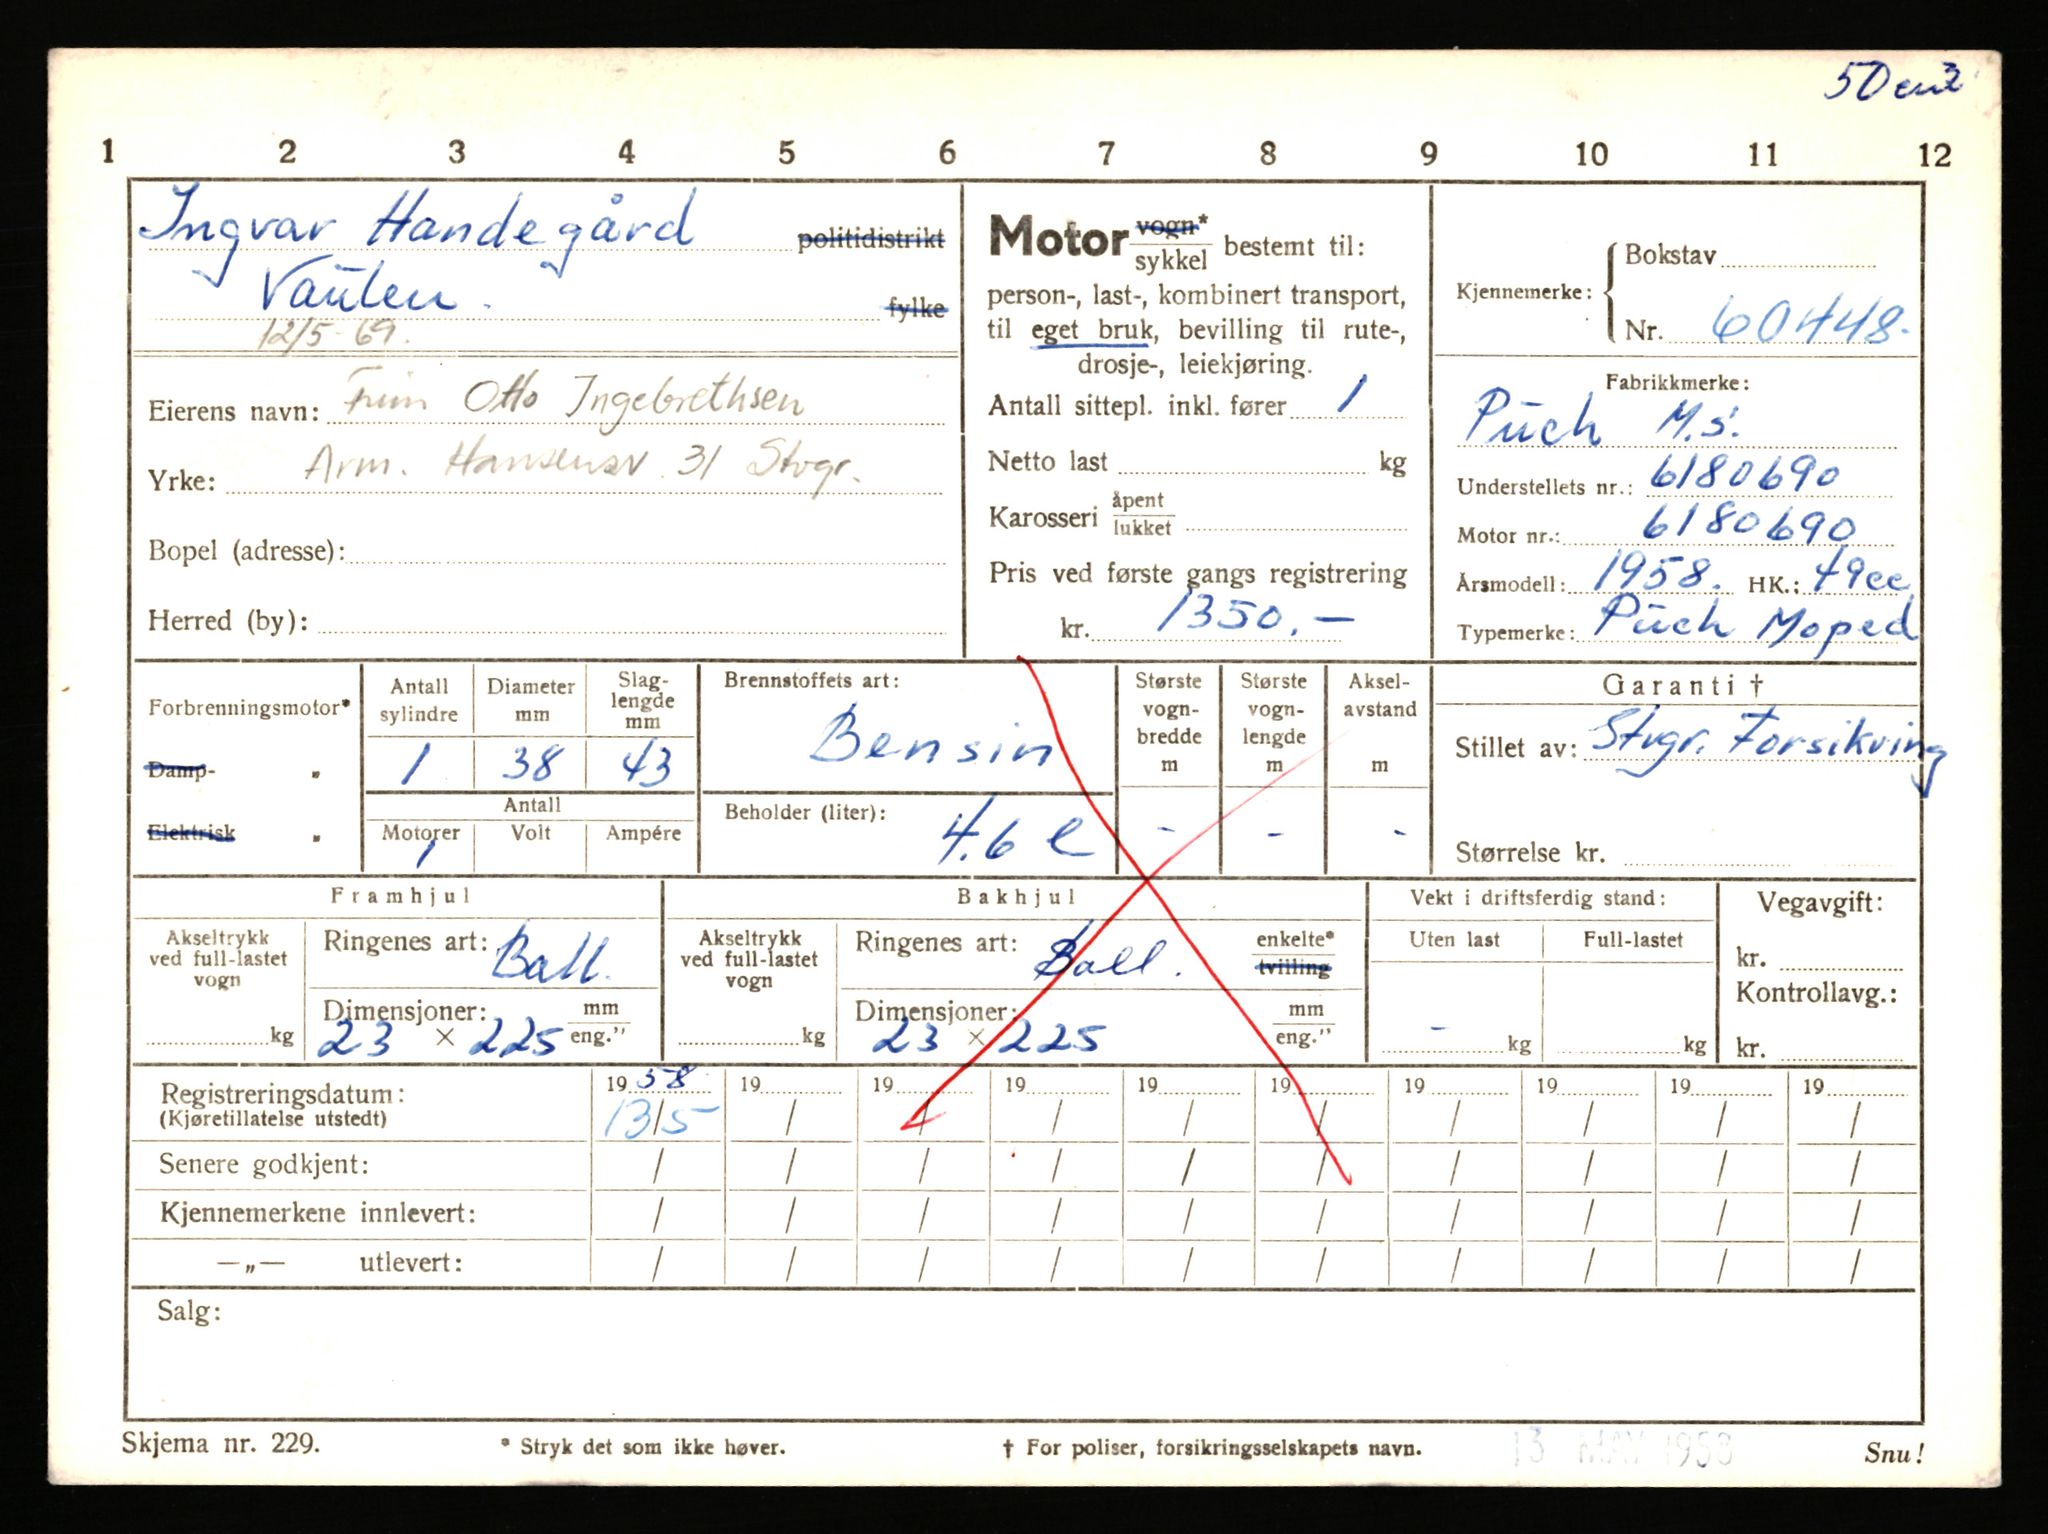 50 cm3
1 2 3 4 5 6 7 8 9 10 11 12
Ingvar Handegård politidistrikt
Vaulen. fylke
12/5-69.
Eierens navn: Otto Ingebrethsen
Yrke: Arm. Hansensv 31 Stvgr.
Bopel (adresse):
Herred (by):
Motor vogn* sykkel bestemt til:
person-, last-, kombinert transport,
til eget bruk, bevilling til rute-,
drosje-, leiekjøring.
Antall sittepl. inkl. fører 1
Netto last kg
Karosseri åpent lukket
Pris ved første gangs registrering
kr. 1350.-
Kjennemerke: Bokstav
Nr. 60448.
Fabrikkmerke:
Puch M.S.
Understellets nr.: 6180690
Motor nr.: 6180690
Årsmodell: 1958. HK.: 49cc
Typemerke: Puch Moped
Forbrenningsmotor*
Damp- "
Elektrisk "
Antall sylindre Diameter mm Slag-lengde mm
1 38 43
Antall
Motorer Volt Ampére
1
Brennstoffets art:
Bensin
Beholder (liter):
4.6 l
Største vogn-bredde m Største vogn-lengde m Aksel-avstand m
- - -
Garanti †
Stillet av: Stvgr. Forsikring
Størrelse kr.
Framhjul
Akseltrykk ved full-lastet vogn
kg
Ringenes art: Ball.
Dimensjoner: mm eng."
23 × 225
Bakhjul
Akseltrykk ved full-lastet vogn
kg
Ringenes art: Ball. enkelte* tvilling
Dimensjoner: mm eng."
23 × 225
Vekt i driftsferdig stand:
Uten last Full-lastet
- kg kg
Vegavgift:
kr.
Kontrollavg.:
kr.
Registreringsdatum: 1958 19 19 19 19 19 19 19 19 19
(Kjøretillatelse utstedt) 13/5 / / / / / / / / /
Senere godkjent: / / / / / / / / / /
Kjennemerkene innlevert: / / / / / / / / / /
—„— utlevert: / / / / / / / / / /
Salg:
Skjema nr. 229. * Stryk det som ikke høver. † For poliser, forsikringsselskapets navn. 13 MAY 1958 Snu!